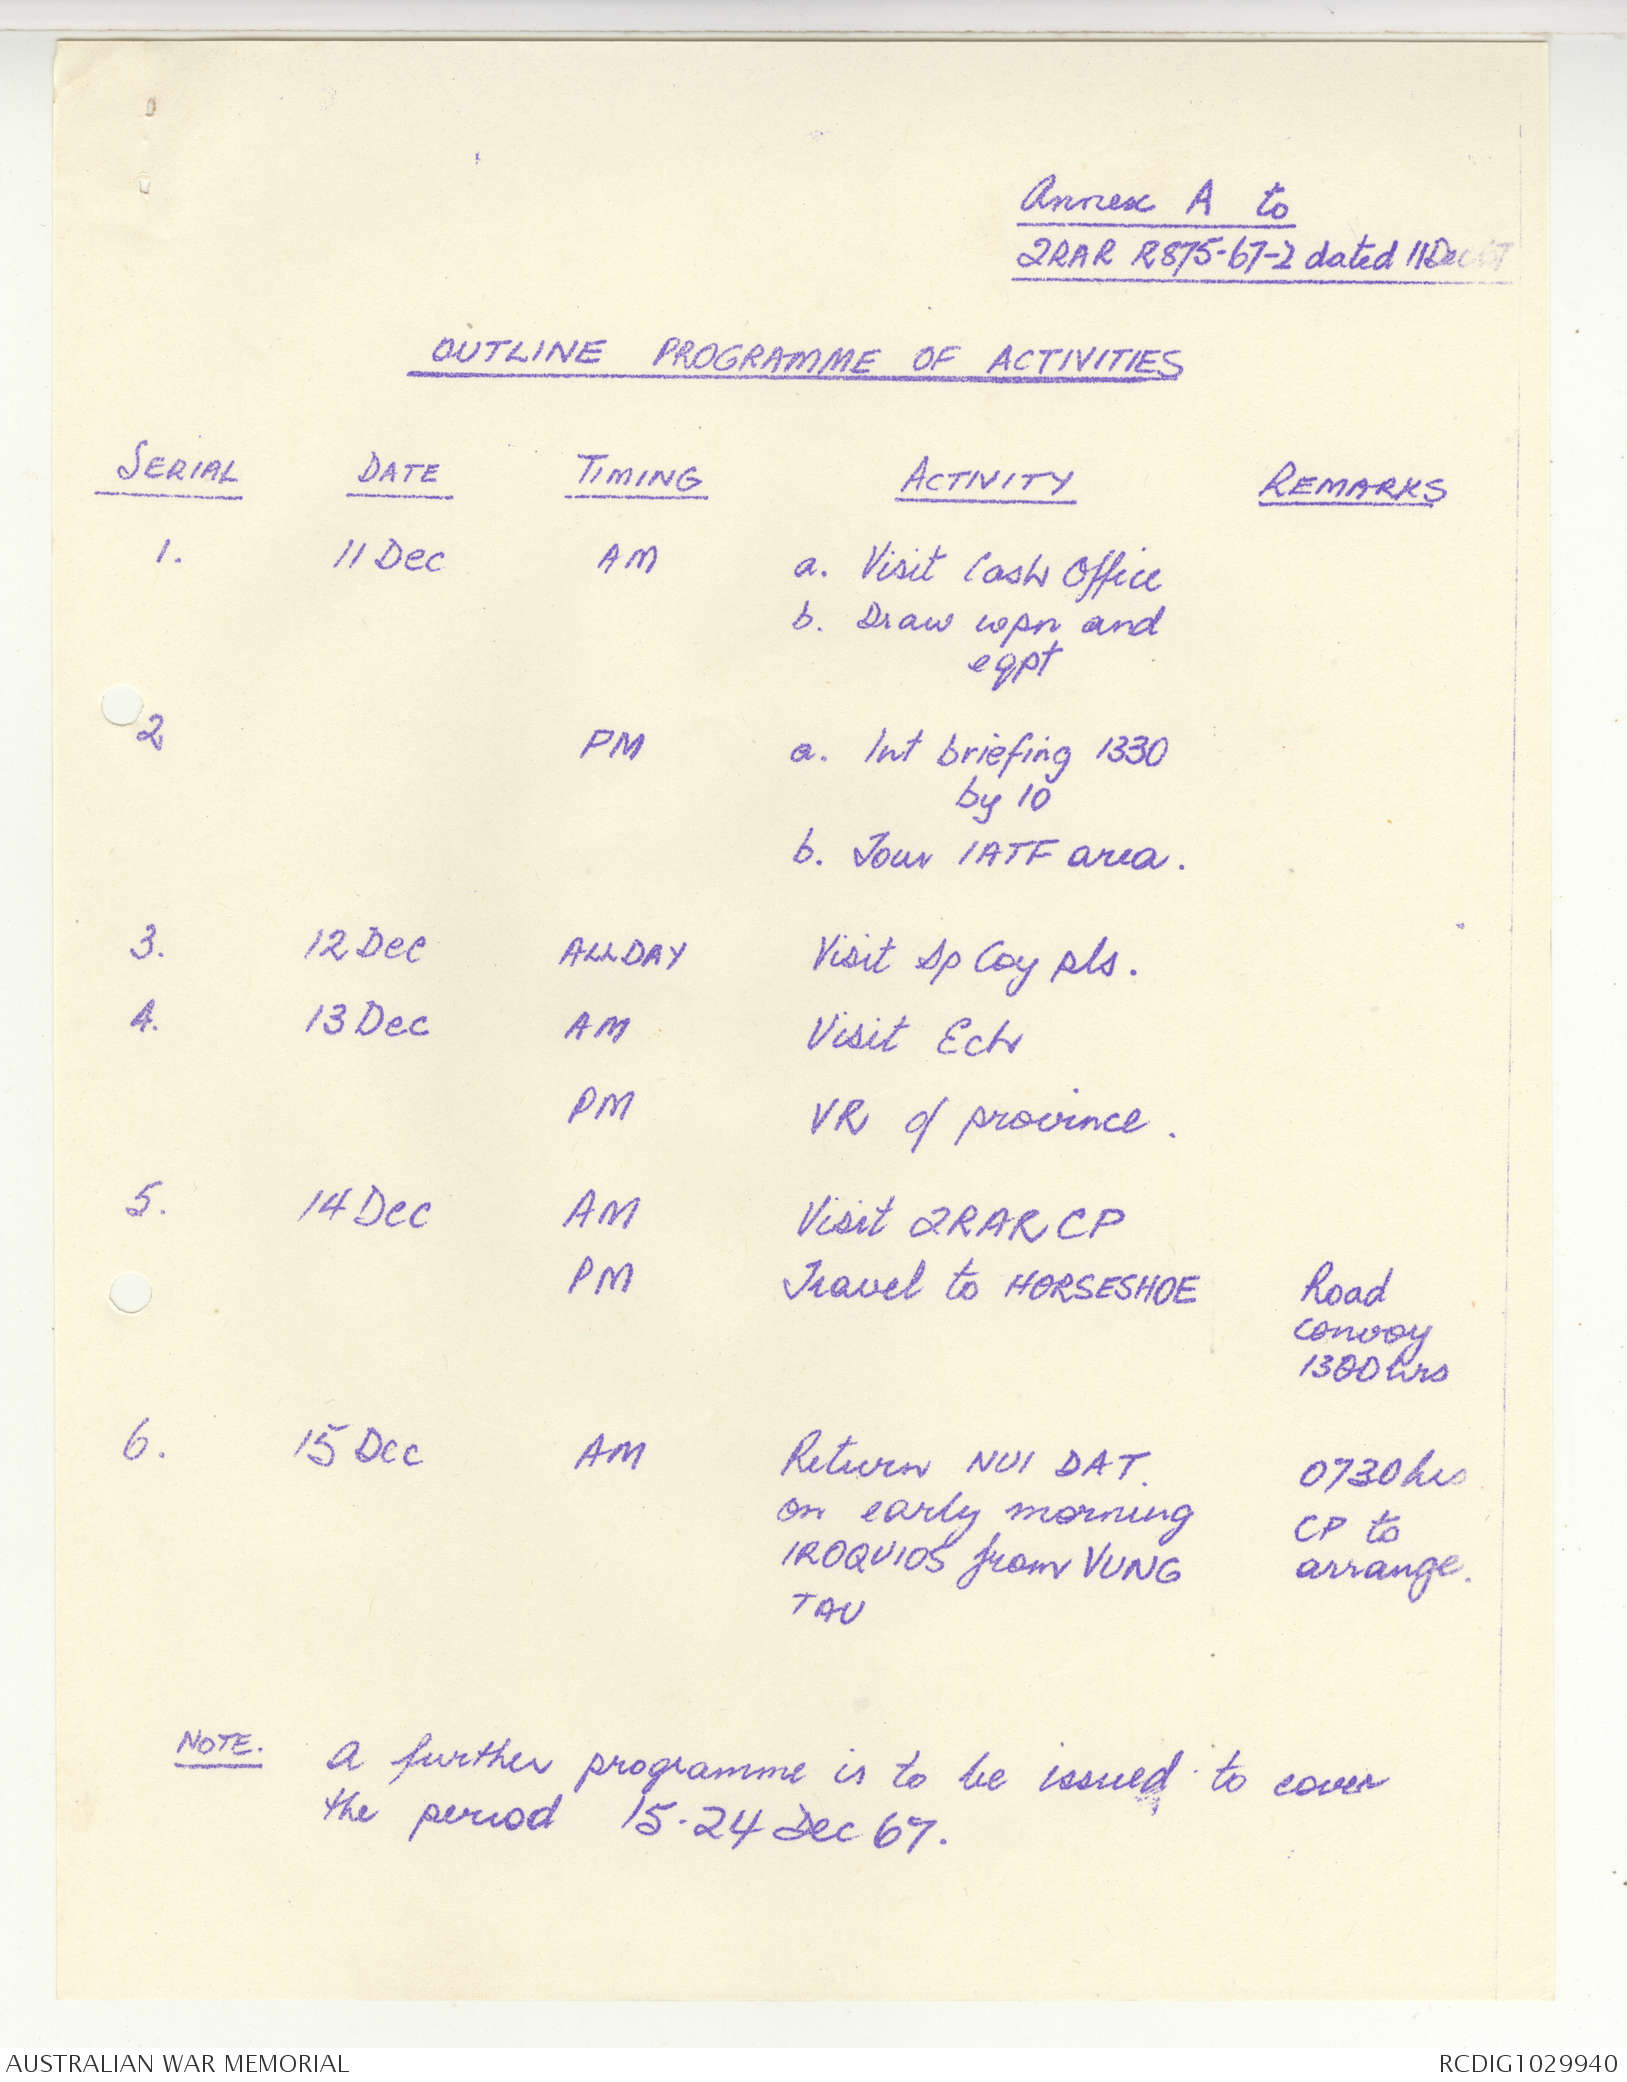 Annex A to
2RAR R875-67-2 dated 11 Dec 67
OUTLINE PROGRAMME OF ACTIVITIES
SERIAL DATE TIMING ACTIVITY REMARKS
1. 11 Dec AM a. Visit Cash Office
b. Draw wpn and
eqpt
2 PM a. Int briefing 1330
by IO
b. Tour 1ATF area.
3. 12 Dec ALL DAY Visit Sp Coy pls.
4. 13 Dec AM Visit Ech
PM VR of province.
5. 14 Dec AM Visit 2RAR CP
PM Travel to HORSESHOE Road
convoy
1300 hrs
6. 15 Dec AM Return NUI DAT. 0730 hrs
on early morning CP to
IROQUIOS from VUNG arrange.
TAU
NOTE. A further programme is to be issued to cover
the period 15-24 Dec 67.
AUSTRALIAN WAR MEMORIAL RCDIG1029940